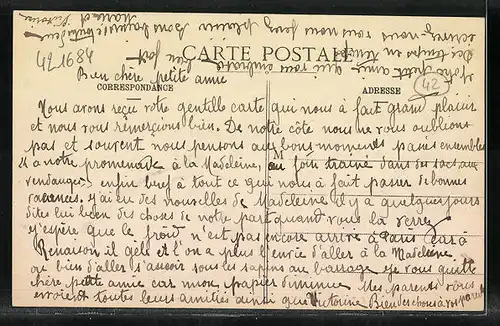 421684
CARTE POSTALE
CORRESPONDANCE
ADRESSE
42
Bien chère petite amie
Nous avons reçu votre gentille carte qui nous à fait grand plaisir
et nous vous remercions bien. De notre côté nous ne vous oublions
pas et souvent nous pensons aux bons moments passés ensembles
à notre promenade à la Madeleine, au foin traîné dans des sacs aux
vendanges enfin bref à tout ce qui nous à fait passer de bonnes
vacances. j'ai eu des nouvelles de Madeleine il y a quelques jours
dites lui bien des choses de notre part quand vous la verrez
j'espère que le froid n'est pas encore arrivé à Paris car à
Renaison il gèle et l'on a plus l'envie d'aller à la Madeleine
ou bien d'aller s'assoir sous les sapins au barrage je vous quitte
chère petite amie car mon papier diminue Mes parents vous
envoient toutes leurs amitiés ainsi que Victorine Bien des choses à vos parents
votre petite amie qui vous embrasse bien fort